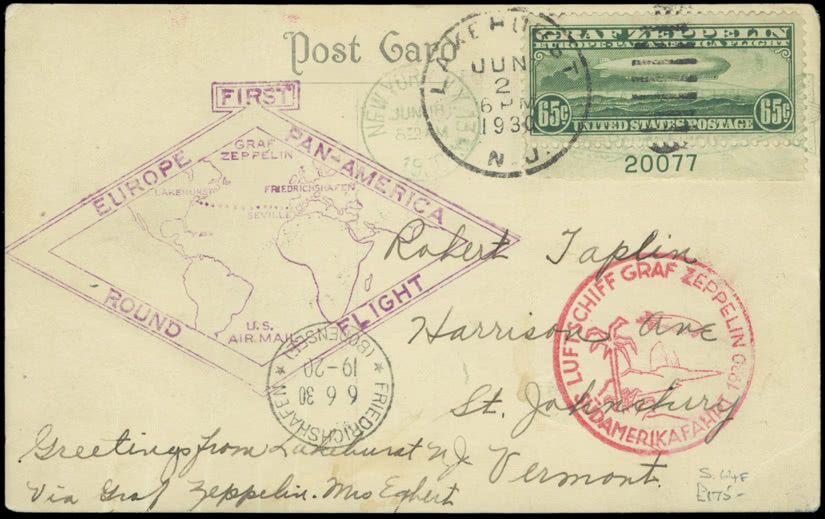 Post Card
LAKEHURST
JUN
2
6 PM
1930
N.J.
GRAF ZEPPELIN
EUROPE-PAN-AMERICA FLIGHT
65¢ 65¢
UNITED STATES POSTAGE
20077
NEW YORK, N.Y.
JUN 18
FIRST
EUROPE PAN-AMERICA
ROUND FLIGHT
GRAF
ZEPPELIN
LAKEHURST
FRIEDRICHSHAFEN
SEVILLE
U.S.
AIR MAIL
Robert Taplin
Harrison Ave
St. Johnsbury
Vermont.
LUFTSCHIFF GRAF ZEPPELIN
SÜDAMERIKAFAHRT 1930
FRIEDRICHSHAFEN
6 6 30
19-20
(BODENSEE)
Greetings from Lakehurst N.J.
Via Graf Zeppelin. Mrs Egbert
£175-